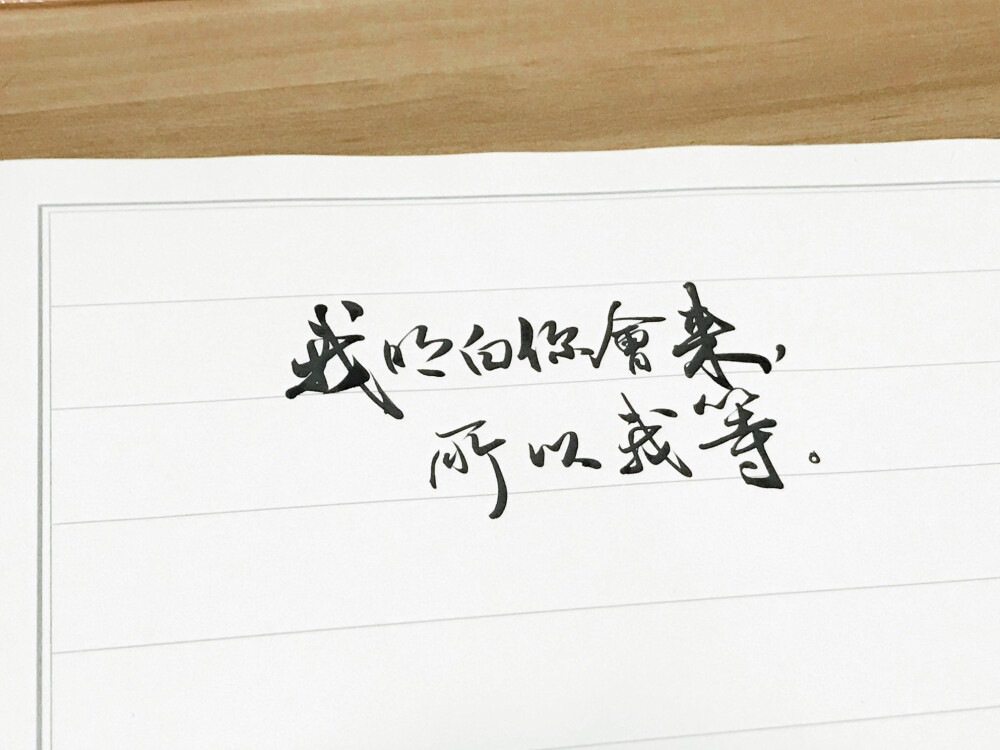 我明白你會来，
所以我等。